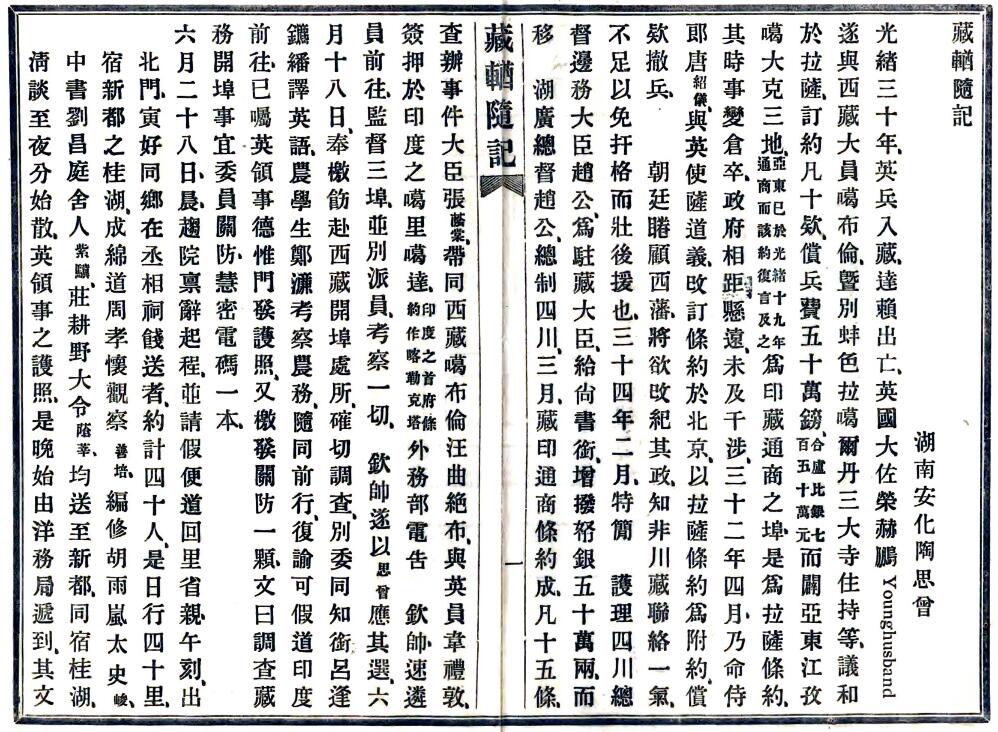 藏輶隨記
湖南安化陶思曾
光緒三十年、英兵入藏、達賴出亡、英國大佐榮赫鵬 Younghusband
遂與西藏大員噶布倫、暨別蚌色拉噶爾丹三大寺住持等、議和
於拉薩、訂約凡十欵、償兵費五十萬鎊、合盧比銀七百五十萬元而闢亞東江孜
噶大克三地、亞東已於光緒十九年通商而該約復言及之為印藏通商之埠、是為拉薩條約、
其時事變倉卒、政府相距懸遠、未及干涉、三十二年四月、乃命侍
郎唐紹儀、與英使薩道義、改訂條約於北京、以拉薩條約為附約、償
欵撤兵、　朝廷睠顧西藩、將欲改紀其政、知非川藏聯絡一氣、
不足以免扞格而壯後援也、三十四年二月、特簡　護理四川總
督邊務大臣趙公、為駐藏大臣、給尙書銜、增撥帑銀五十萬兩、而
移　湖廣總督趙公、總制四川、三月、藏印通商條約成、凡十五條
藏輶隨記
一
查辦事件大臣張蔭棠、帶同西藏噶布倫汪曲絶布、與英員韋禮敦、
簽押於印度之噶里噶達、印度之首府條約作喀勒克塔外務部電告　欽帥、速遴
員前往、監督三埠、並別派員、考察一切、　欽帥遂以思曾應其選、六
月十八日、奉檄飭赴西藏開埠處所、確切調查、別委同知銜呂逢
鑣繙譯英語、農學生鄭濂考察農務、隨同前行、復諭可假道印度
前往、已囑英領事德惟門發護照、又檄發關防一顆、文曰調查藏
務開埠事宜委員關防、慧密電碼一本、
六月二十八日、晨、趨院禀辭起程、並請假便道回里省親、午刻、出
北門、寅好同鄉在丞相祠餞送者、約計四十人、是日行四十里、
宿新都之桂湖、成綿道周孝懷觀察善培、編修胡雨嵐太史峻、
中書劉昌庭舍人紫驥、莊耕野大令蔭莘、均送至新都、同宿桂湖、
淸談至夜分始散、英領事之護照、是晚始由洋務局遞到、其文